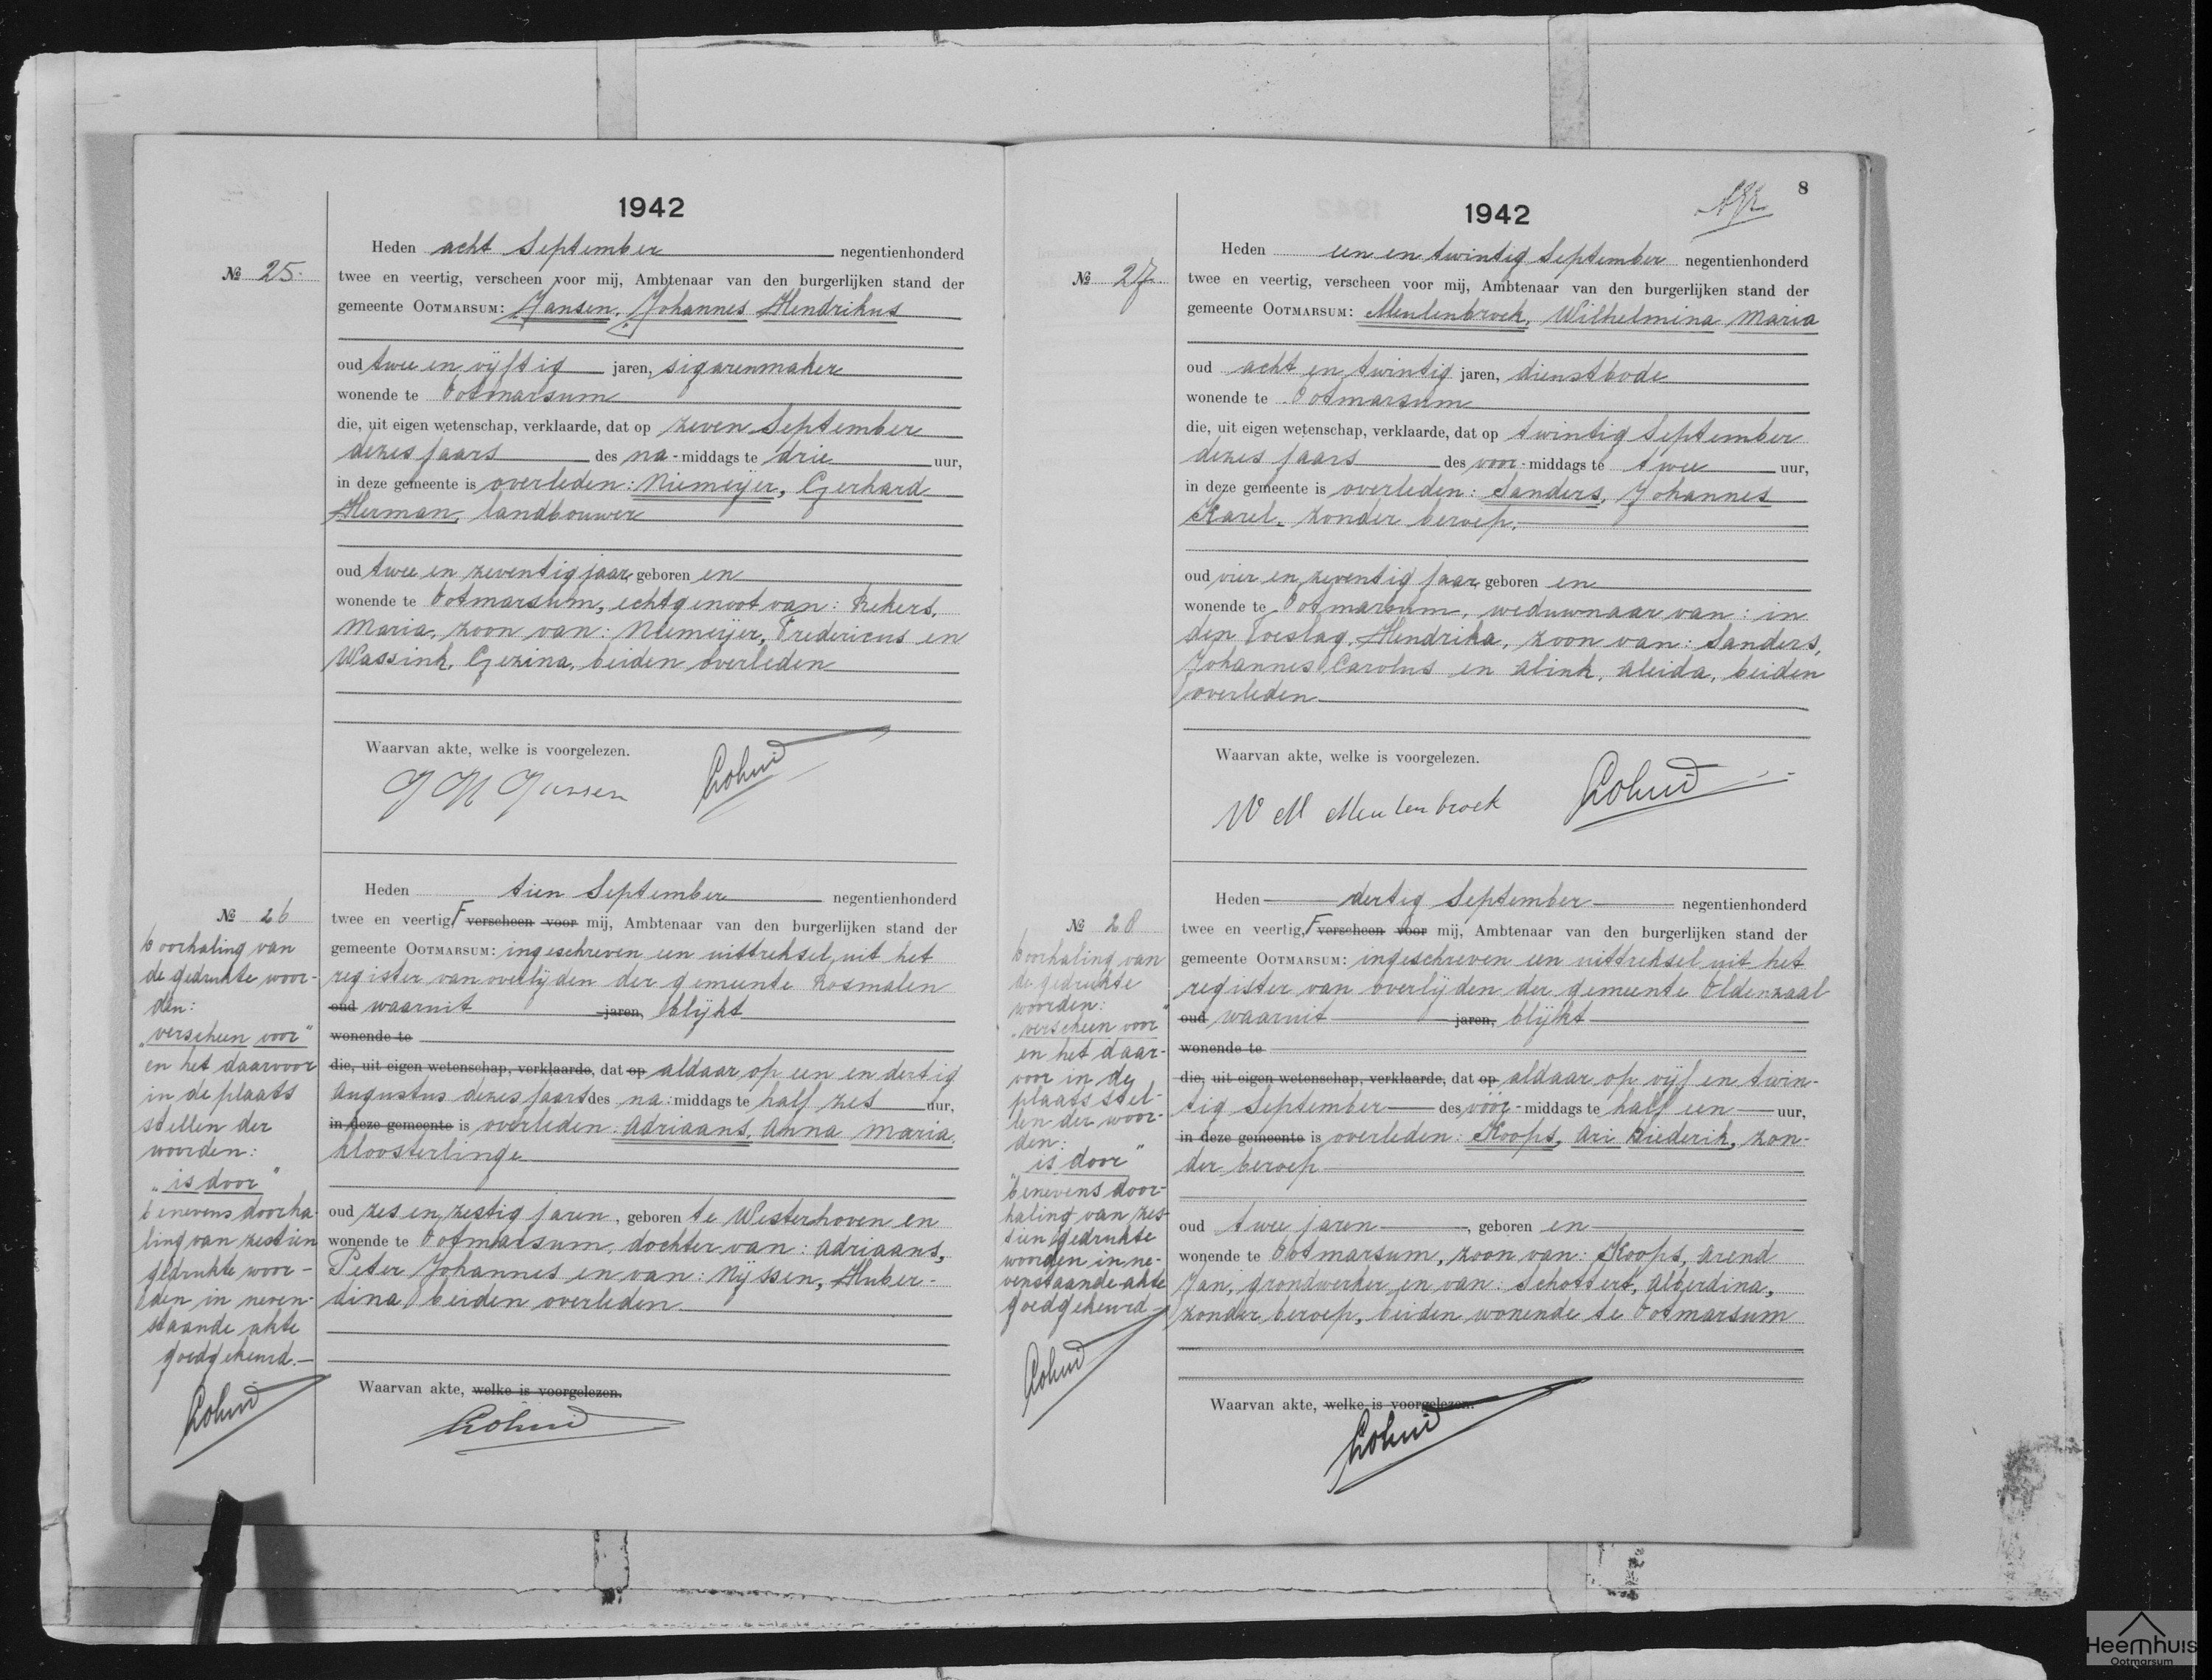 1942
Heden acht September negentienhonderd
№ 25.
twee en veertig, verscheen voor mij, Ambtenaar van den burgerlijken stand der
gemeente OOTMARSUM: Jansen, Johannes Hendrikus
oud twee en vijftig jaren, sigarenmaker
wonende te Ootmarsum
die, uit eigen wetenschap, verklaarde, dat op zeven September
dezes jaars des na-middags te drie uur,
in deze gemeente is overleden: Niemeijer, Gerhard
Herman, landbouwer
oud twee en zeventig jaar geboren en
wonende te Ootmarsum, echtgenoot van: Rekers,
Maria, zoon van: Niemeijer, Fredericus en
Wassink, Gezina, beiden overleden
Waarvan akte, welke is voorgelezen.
J H Jansen
Heden tien September negentienhonderd
№ 26
twee en veertig, F verscheen voor mij, Ambtenaar van den burgerlijken stand der
gemeente OOTMARSUM: ingeschreven een uittreksel uit het
register van overlijden der gemeente Rosmalen
oud waaruit jaren, blijkt
wonende te
die, uit eigen wetenschap, verklaarde, dat op aldaar op een en dertig
Augustus dezes jaars des na-middags te half zes uur,
in deze gemeente is overleden: Adriaans, Anna Maria,
kloosterlinge
oud zes en zestig jaren, geboren te Westerhoven en
wonende te Ootmarsum, dochter van: Adriaans,
Peter Johannes en van: Nijssen, Huber-
dina beiden overleden
Waarvan akte, welke is voorgelezen.
Doorhaling van
de gedrukte woor-
den:
„verscheen voor"
en het daarvoor
in de plaats
stellen der
woorden:
„is door"
benevens doorha-
ling van zestien
gedrukte woor-
den in neven-
staande akte
goedgekeurd.-
8
1942
Heden een en twintig September negentienhonderd
№ 27
twee en veertig, verscheen voor mij, Ambtenaar van den burgerlijken stand der
gemeente OOTMARSUM: Meulenbroek, Wilhelmina Maria
oud acht en twintig jaren, dienstbode
wonende te Ootmarsum
die, uit eigen wetenschap, verklaarde, dat op twintig September
dezes jaars des voor-middags te twee uur,
in deze gemeente is overleden: Sanders, Johannes
Karel, zonder beroep,
oud vier en zeventig jaar geboren en
wonende te Ootmarsum, weduwnaar van: in
den Toeslag, Hendrika, zoon van: Sanders,
Johannes Carolus en Alink, Aleida, beiden
overleden
Waarvan akte, welke is voorgelezen.
W M Meulenbroek
Heden dertig September negentienhonderd
№ 28
twee en veertig, F verscheen voor mij, Ambtenaar van den burgerlijken stand der
gemeente OOTMARSUM: ingeschreven een uittreksel uit het
register van overlijden der gemeente Oldenzaal
oud waaruit jaren, blijkt
wonende te
die, uit eigen wetenschap, verklaarde, dat op aldaar op vijf en twin-
tig September des voor-middags te half een uur,
in deze gemeente is overleden: Koops, Ari Diederik, zon-
der beroep
oud twee jaren, geboren en
wonende te Ootmarsum, zoon van: Koops, Arend
Jan, grondwerker en van: Schottert, Alberdina,
zonder beroep, beiden wonende te Ootmarsum
Waarvan akte, welke is voorgelezen.
Doorhaling van
de gedrukte
woorden:
„verscheen voor"
en het daar-
voor in de
plaats stel-
len der woor-
den:
„is door"
benevens door-
haling van zes-
tien gedrukte
woorden in ne-
venstaande akte
goedgekeurd-
Heemhuis
Ootmarsum